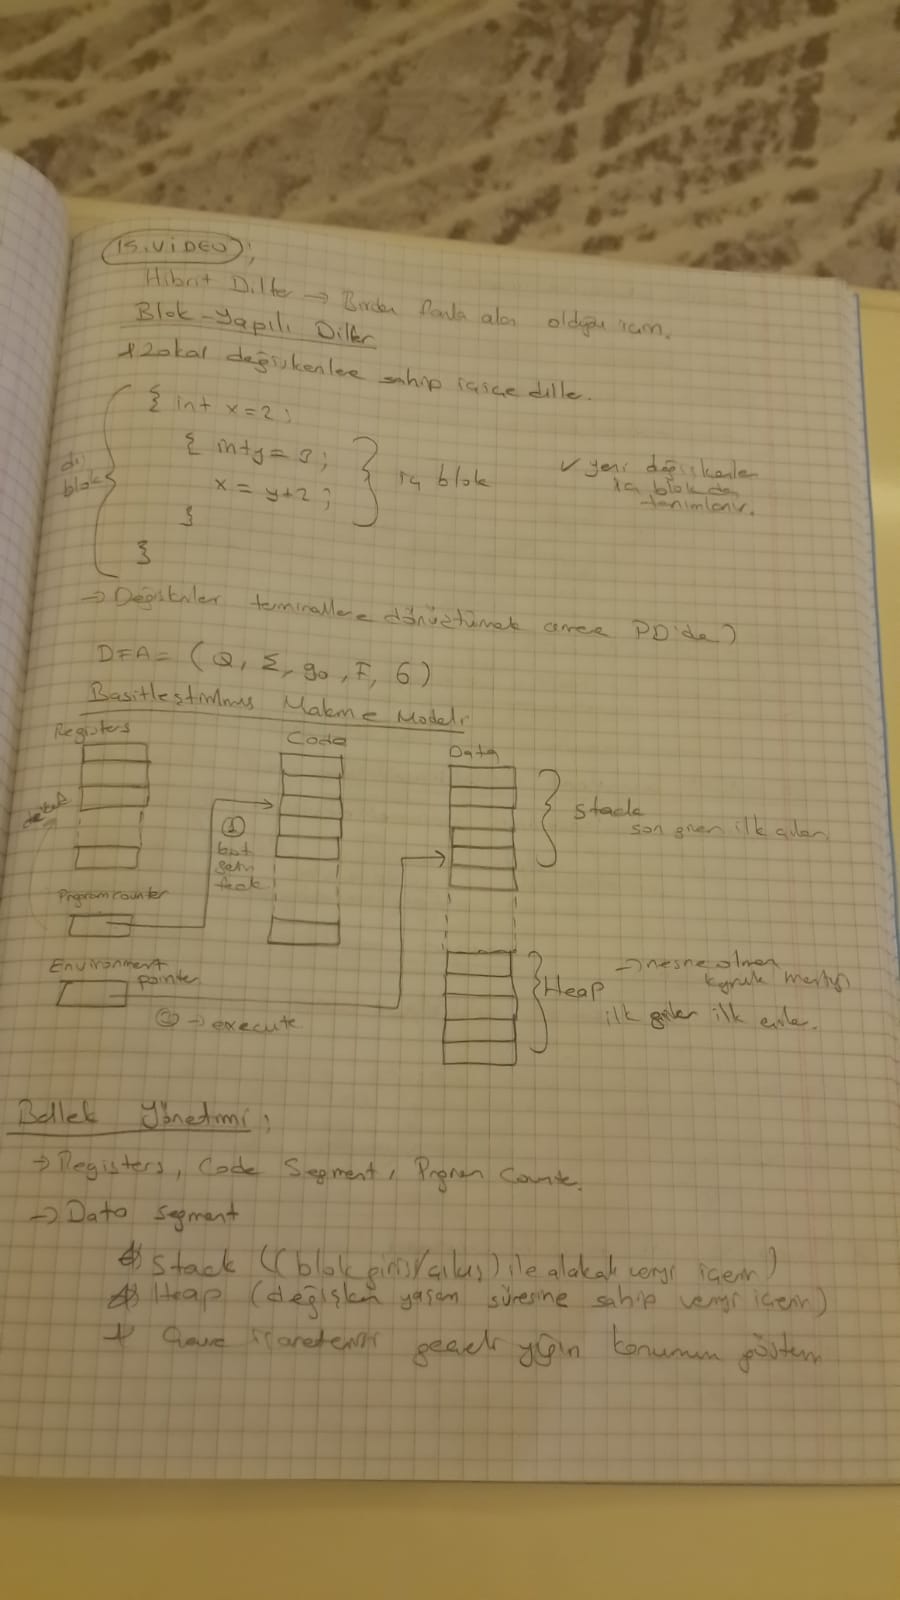 15.VİDEO;
Hibrit Diller → Birden fazla alan olduğu için.
Blok-Yapılı Diller
* Lokal değişkenlere sahip içiçe diller.
{ int x=2;
{ int y=3;
x = y+2;
}
}
dış blok
iç blok
✓ yeni değişkenler
iç blokdan
tanımlanır.
→ Değişkenler terminallere dönüştürmek PD'de)
DFA = (Q, Σ, q0, F, δ)
Basitleştirilmiş Makine Modeli
Registers
Code
Data
stack
son giren ilk çıkan
①
Program counter
Environment pointer
② → execute
Heap
→ nesne
kuyruk mantığı
ilk giren ilk çıkar.
Bellek Yönetimi:
→ Registers, Code Segment, Program Counter
→ Data segment
* Stack ((blok giriş/çıkış) ile alakalı veriyi içerir)
* Heap (değişken yaşam süresine sahip veriyi içerir)
* Çevre işaretçisi geçerli yığın konumunu gösterir